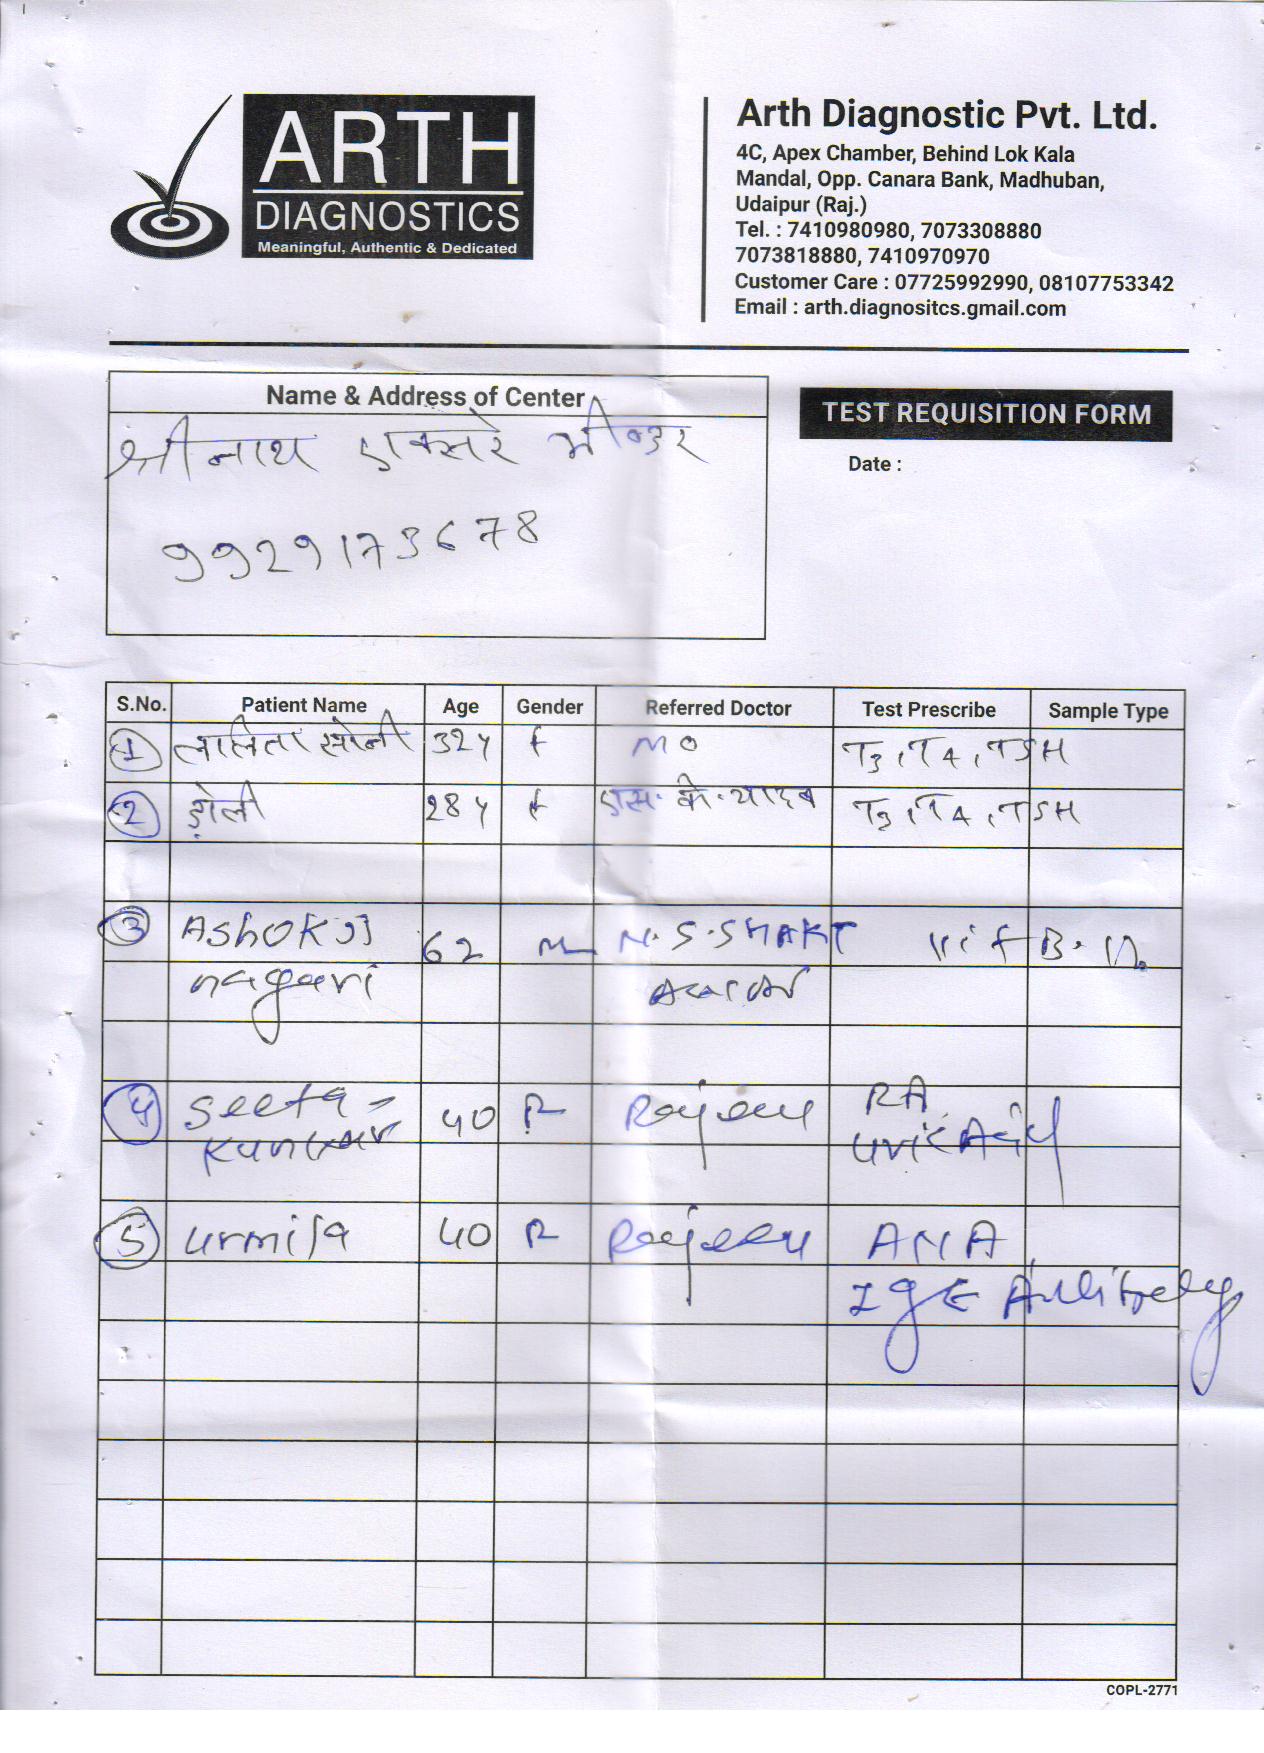 ARTH
DIAGNOSTICS
Meaningful, Authentic & Dedicated
Arth Diagnostic Pvt. Ltd.
4C, Apex Chamber, Behind Lok Kala
Mandal, Opp. Canara Bank, Madhuban,
Udaipur (Raj.)
Tel. : 7410980980, 7073308880
7073818880, 7410970970
Customer Care : 07725992990, 08107753342
Email : arth.diagnositcs.gmail.com
Name & Address of Center
श्रीनाथ एक्सरे भीण्डर
9929173678
TEST REQUISITION FORM
Date :
S.No. Patient Name Age Gender Referred Doctor Test Prescribe Sample Type
1 ललिता सोनी 32y f MO T3, T4, TSH
2 28y f एस. के. यादव T3, T4, TSH
3 Ashok JJ 62 M N.S.SHAKT Vit B. 12
nagauri
4 Seeta - 40 F Rajeev RA
Kunwar Uric Acid
5 Urmila 40 F Rajeev ANA
IgE
COPL-2771